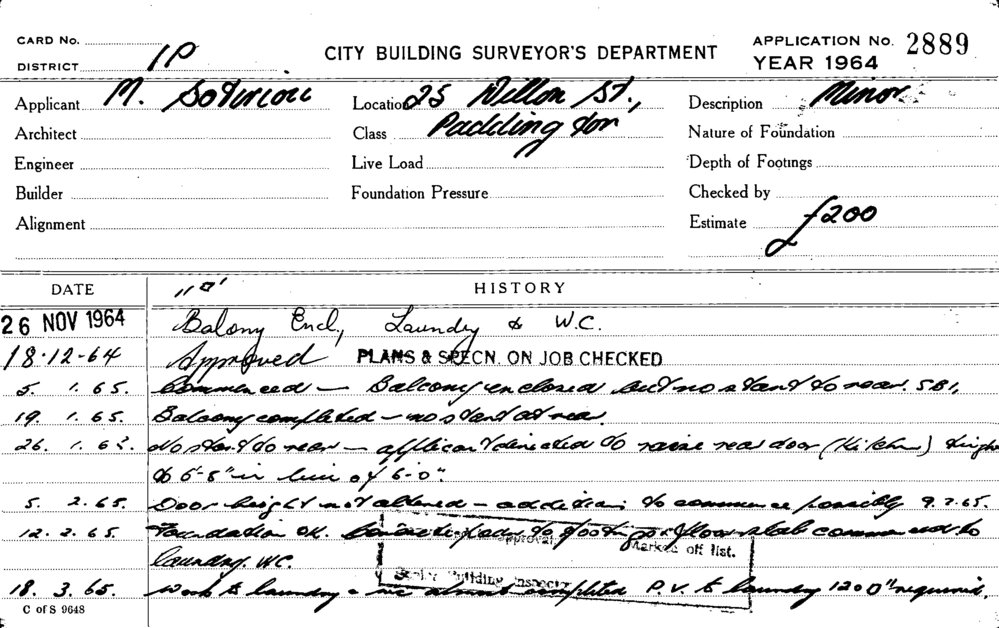 CARD No.
DISTRICT 1P
CITY BUILDING SURVEYOR'S DEPARTMENT
APPLICATION No. 2889
YEAR 1964
Applicant M. Soturiou
Location 25 Dillon St.,
Description Minor
Architect
Class Paddington
Nature of Foundation
Engineer
Live Load
Depth of Footings
Builder
Foundation Pressure
Checked by
Alignment
Estimate £200
DATE
HISTORY
"D"
26 NOV 1964 Balony Encl, Laundry & W.C.
18.12-64 Approved PLANS & SPECN. ON JOB CHECKED
5. 1. 65. Commenced — Balcony enclosed but no start to rear. SBI,
19. 1. 65. Balcony completed — no start at rear.
26. 1. 65. No start to rear — applicant directed to raise rear door (Kitchen) height
to 6'-8" in lieu of 6'-0".
5. 2. 65. Door height not altered — additions to commence possibly 9.2.65.
12. 2. 65. Foundation OK. footings & floor slab commenced to
laundry. WC.
approval
Marked off list.
Building Inspector
18. 3. 65. Work to laundry & wc almost completed P.V. to laundry 120 0" required.
C of S 9648